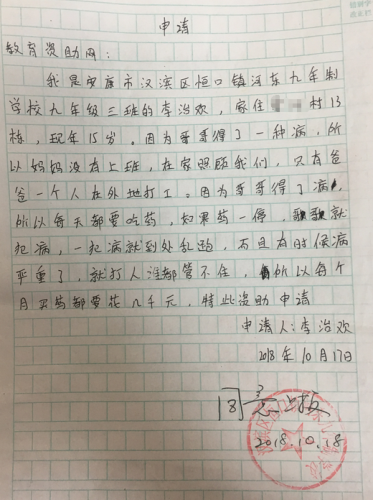 申请
教育资助网：
我是安康市汉滨区恒口镇河东九年制
学校九年级三班的李治欢，家住村13
栋，现年15岁。因为哥哥得了一种病，所
以妈妈没有上班，在家照顾我们，只有爸
爸一个人在外地打工。因为哥哥得了病，
所以每天都要吃药，如果药一停，哥哥就
犯病，一犯病就到处乱跑，而且有时候病
严重了，就打人谁都管不住，所以每个
月买药都要花几千元，特此资助申请
申请人：李治欢
2018年10月17日
同意上报
2018.10.18